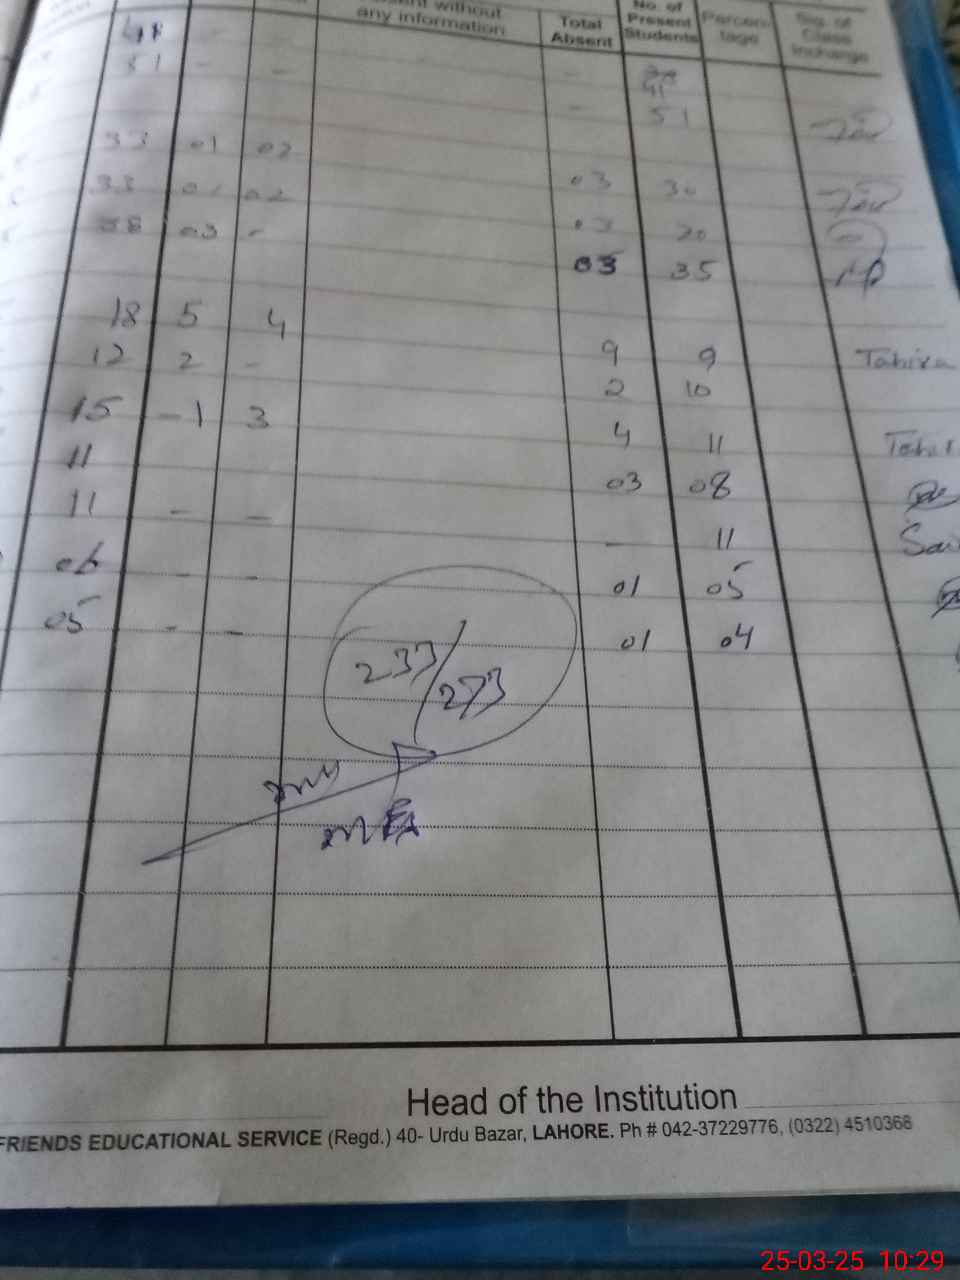 without
any information
Total
Absent
No. of
Present
Students
Percen-
tage
Sig. of
Class
Incharge
31 - - -
51
33 01 02
33 01 02 03 30
38 03 - 03 30
03 35
18 5 4
12 2 - 9 9 Tahira
15 -1 3 2 10
11 4 11
11 - - 03 08
06 - - - 11
05 - - 01 05
01 04
233/273
Head of the Institution
FRIENDS EDUCATIONAL SERVICE (Regd.) 40- Urdu Bazar, LAHORE. Ph # 042-37229776, (0322) 4510368
25-03-25 10:29